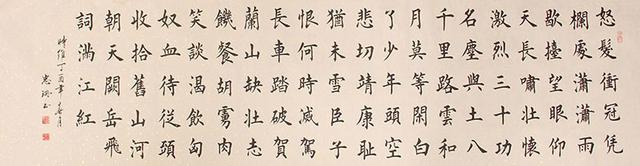 怒髮衝冠凭
欄處瀟瀟雨
歇擡望眼仰
天長嘯壯懷
激烈三十功
名塵與土八
千里路雲和
月莫等閒白
了少年頭空
悲切靖康耻
猶未雪臣子
恨何時滅駕
長車踏破賀
蘭山缺壯志
饑餐胡虜肉
笑談渴飲匈
奴血待從頭
收拾舊山河
朝天闕岳飛
詞滿江紅
時維丁酉年春月